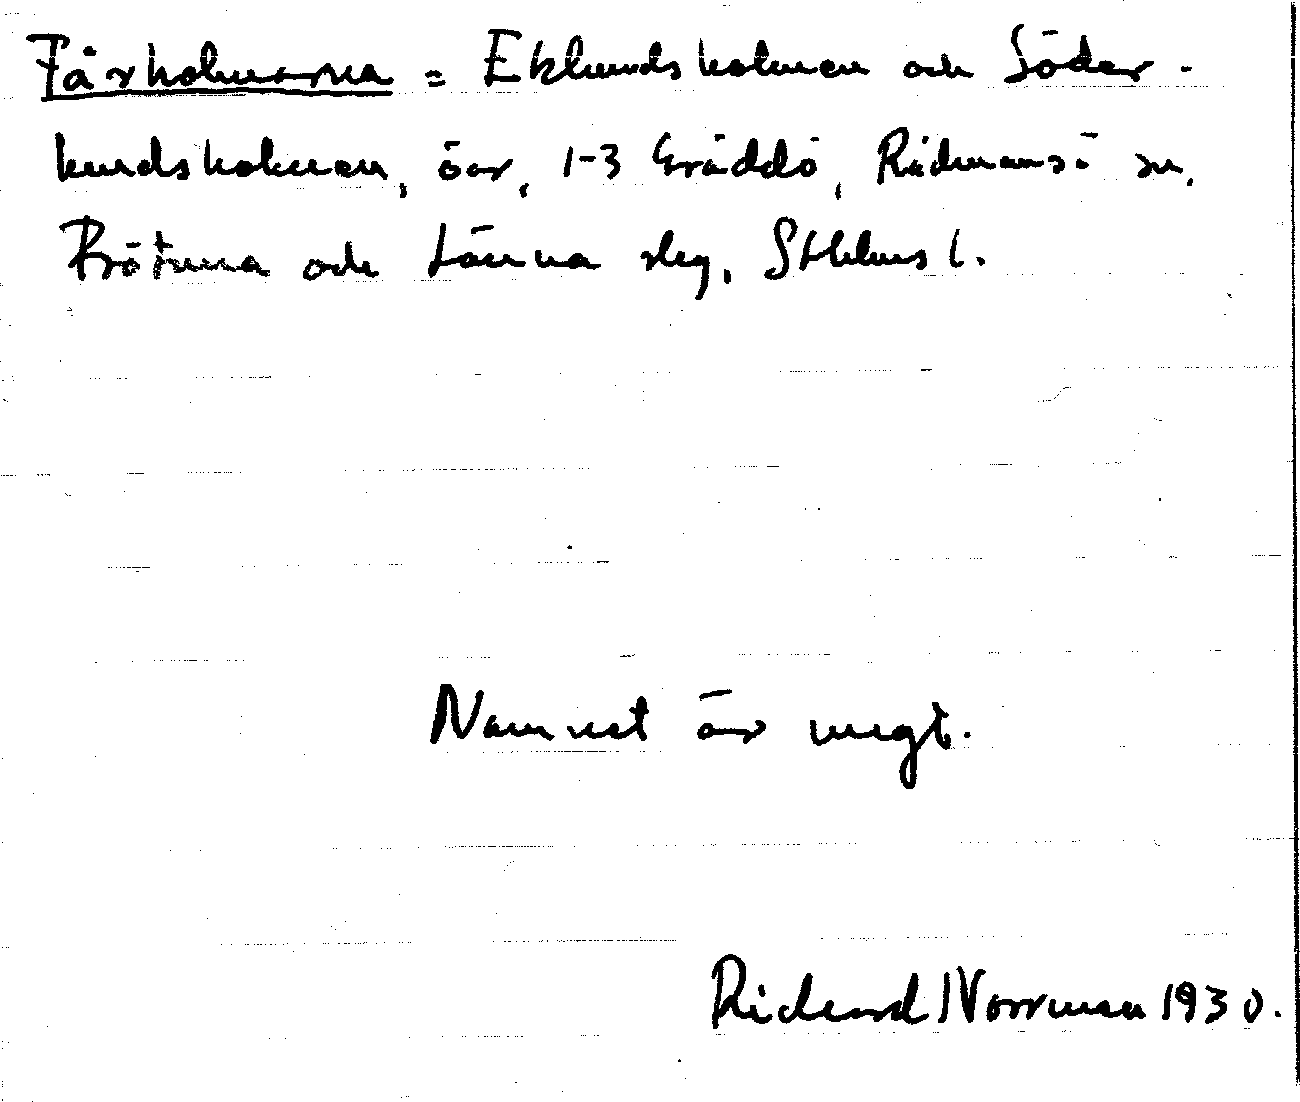 Fårholmarna = Eklundsholmen och Söder-
kundsholmen, öar, 1-3 Gräddö, Rådmansö sn,
Frötuna och Länna slg, Sthlms l.
Namnet är ungt.
Richard Norrman 1930.